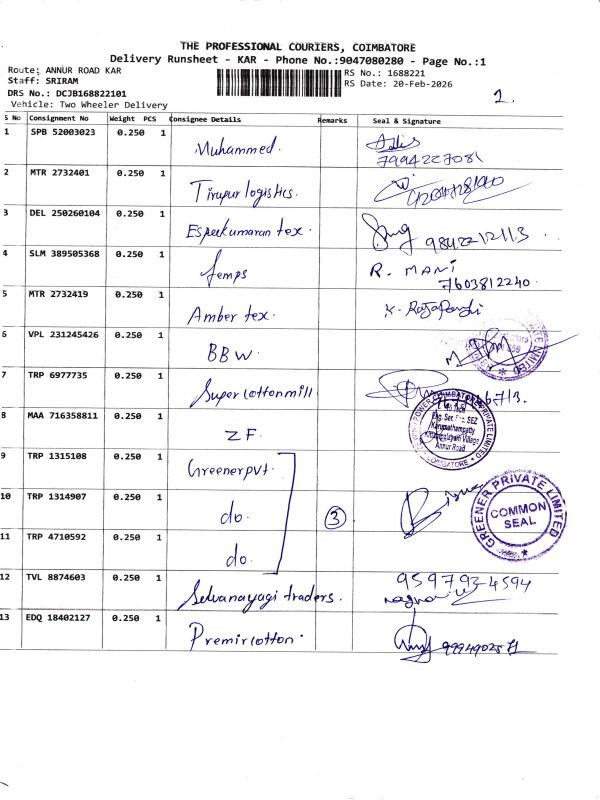 THE PROFESSIONAL COURIERS, COIMBATORE
Delivery Runsheet - KAR - Phone No.:9047080280 - Page No.:1
Route: ANNUR ROAD KAR
Staff: SRIRAM
DRS No.: DCJB168822101
Vehicle: Two Wheeler Delivery
RS No.: 1688221
RS Date: 20-Feb-2026
1.
S No Consignment No Weight PCS Consignee Details Remarks Seal & Signature
1 SPB 52003023 0.250 1 Muhammed.
7994227081
2 MTR 2732401 0.250 1 Tirupur logistics.
3 DEL 250260104 0.250 1 Espeekumaran tex.
9842212113
4 SLM 389505368 0.250 1 femps R. MANI
7603812240
5 MTR 2732419 0.250 1 Amber tex. K. Rajapandi
6 VPL 231245426 0.250 1 BBW.
7 TRP 6977735 0.250 1 Super cotton mill
8 MAA 716358811 0.250 1 ZF.
Eng. Ser. SEZ
Karumathampatty
Annur Road
COIMBATORE
9 TRP 1315108 0.250 1 Greener pvt.
10 TRP 1314907 0.250 1 do. 3
GREENER PRIVATE LIMITED
COMMON
SEAL
11 TRP 4710592 0.250 1 do.
12 TVL 8874603 0.250 1 Selvanayagi traders. 9597934594
13 EDQ 18402127 0.250 1 Premier cotton. 9994902571